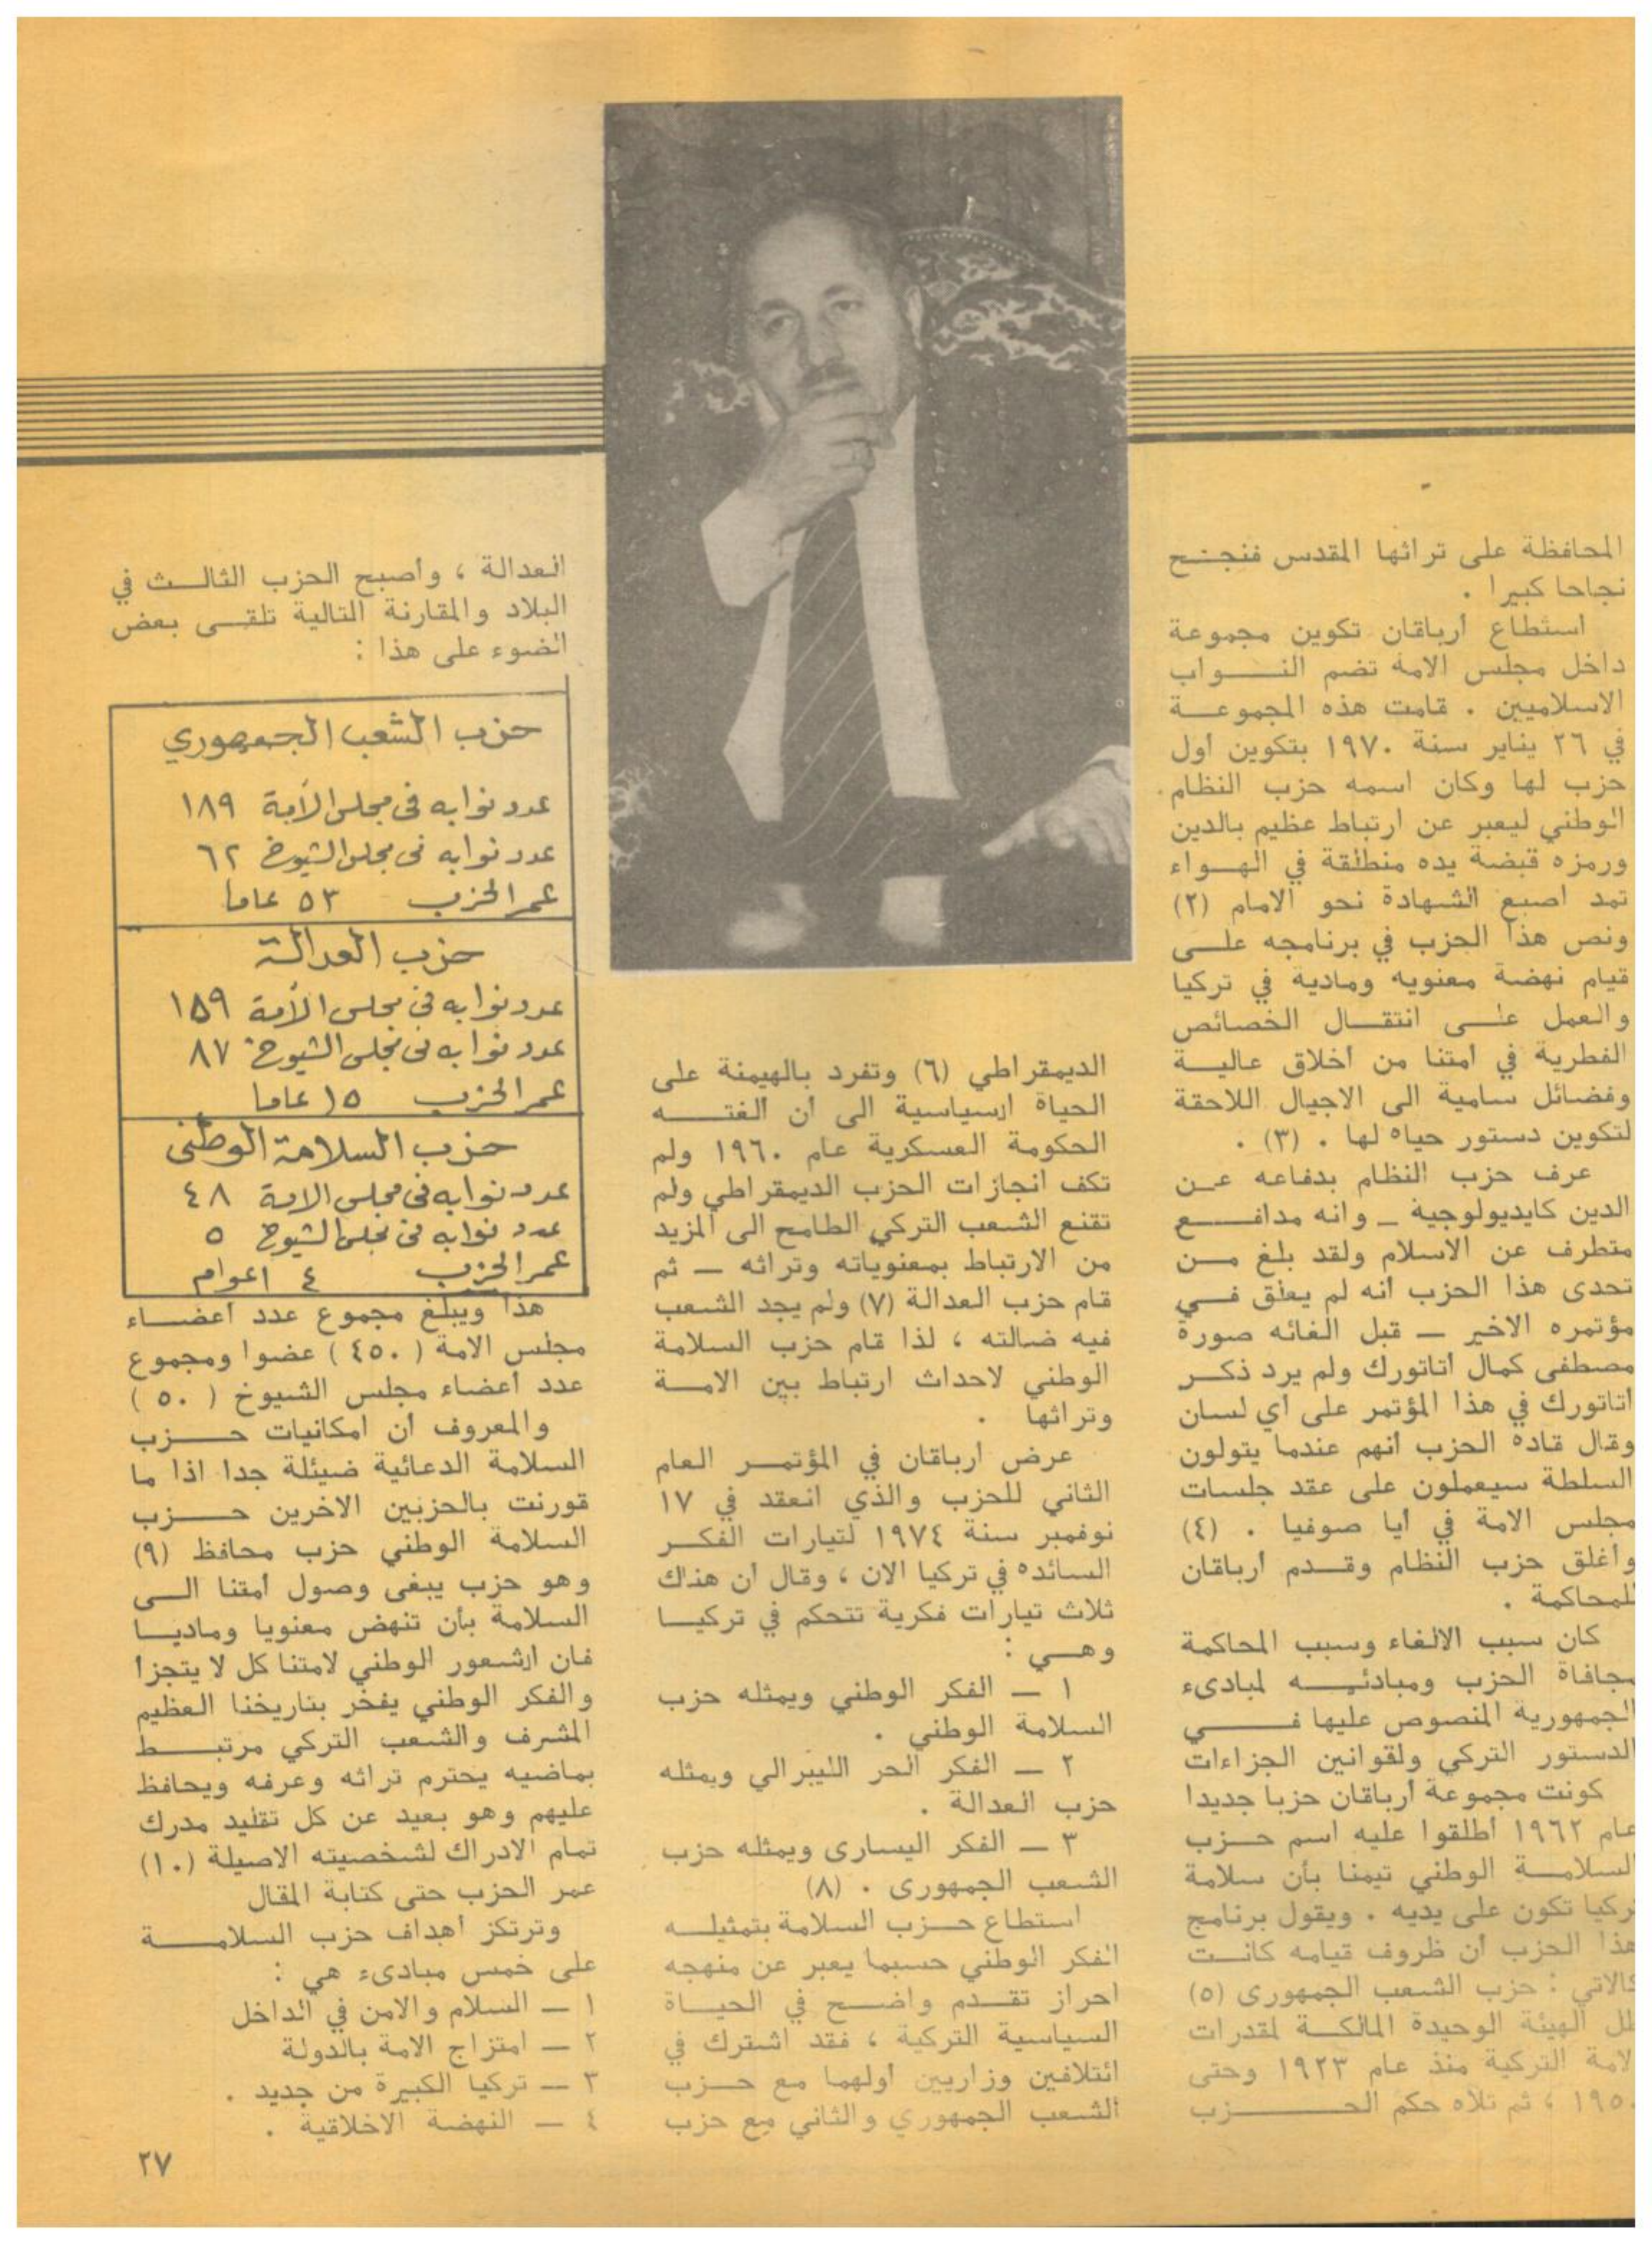 المحافظة على تراثها المقدس فنجح
نجاحا كبيرا .
استطاع أرباقان تكوين مجموعة
داخل مجلس الامة تضم النواب
الاسلاميين . قامت هذه المجموعة
في ٢٦ يناير سنة ١٩٧٠ بتكوين أول
حزب لها وكان اسمه حزب النظام
الوطني ليعبر عن ارتباط عظيم بالدين
ورمزه قبضة يده منطلقة في الهواء
تمد اصبع الشهادة نحو الامام (٢)
ونص هذا الحزب في برنامجه على
قيام نهضة معنويه ومادية في تركيا
والعمل على انتقال الخصائص
الفطرية في أمتنا من أخلاق عالية
وفضائل سامية الى الاجيال اللاحقة
لتكوين دستور حياه لها . (٣) .
عرف حزب النظام بدفاعه عن
الدين كايديولوجية ـ وانه مدافع
متطرف عن الاسلام ولقد بلغ من
تحدى هذا الحزب أنه لم يعلق في
مؤتمره الاخير — قبل الغائه صورة
مصطفى كمال أتاتورك ولم يرد ذكر
أتاتورك في هذا المؤتمر على أي لسان
وقال قاده الحزب انهم عندما يتولون
السلطة سيعملون على عقد جلسات
مجلس الامة في أيا صوفيا . (٤)
وأغلق حزب النظام وقدم أرباقان
للمحاكمة .
كان سبب الالغاء وسبب المحاكمة
مجافاة الحزب ومبادئه لمبادىء
الجمهورية المنصوص عليها في
الدستور التركي ولقوانين الجزاءات
كونت مجموعة أرباقان حزبا جديدا
عام ١٩٦٢ أطلقوا عليه اسم حزب
السلامة الوطني تيمنا بأن سلامة
تركيا تكون على يديه . ويقول برنامج
هذا الحزب ان ظروف قيامه كانت
كالاتي : حزب الشعب الجمهورى (٥)
ظل الهيئة الوحيدة المالكة لمقدرات
لامة التركية منذ عام ١٩٢٣ وحتى
١٩٥٠ ، ثم تلاه حكم الحزب
الديمقراطي (٦) وتفرد بالهيمنة على
الحياة ارسياسية الى أن ألغته
الحكومة العسكرية عام ١٩٦٠ ولم
تكف انجازات الحزب الديمقراطي ولم
تقنع الشعب التركي الطامح الى المزيد
من الارتباط بمعنوياته وتراثه — ثم
قام حزب العدالة (٧) ولم يجد الشعب
فيه ضالته ، لذا قام حزب السلامة
الوطني لاحداث ارتباط بين الامة
وتراثها .
عرض ارباقان في المؤتمر العام
الثاني للحزب والذي انعقد في ١٧
نوفمبر سنة ١٩٧٤ لتيارات الفكر
السائده في تركيا الان ، وقال أن هناك
ثلاث تيارات فكرية تتحكم في تركيا
وهي :
١ — الفكر الوطني ويمثله حزب
السلامة الوطني .
٢ — الفكر الحر الليبرالي ويمثله
حزب العدالة .
٣ — الفكر اليسارى ويمثله حزب
الشعب الجمهورى . (٨)
استطاع حزب السلامة بتمثيله
الفكر الوطني حسبما يعبر عن منهجه
احراز تقدم واضح في الحياة
السياسية التركية ، فقد اشترك في
ائتلافين وزاريين أولهما مع حزب
الشعب الجمهوري والثاني مع حزب
العدالة ، وأصبح الحزب الثالث في
البلاد والمقارنة التالية تلقى بعض
الضوء على هذا :
حزب الشعب الجمهوري
عدد نوابه في مجلس الأمة ١٨٩
عدد نوابه في مجلس الشيوخ ٦٢
عمر الحزب ٥٣ عاما
حزب العدالة
عدد نوابه في مجلس الأمة ١٥٩
عدد نوابه في مجلس الشيوخ ٨٧
عمر الحزب ١٥ عاما
حزب السلامة الوطنى
عدد نوابه في مجلس الامة ٤٨
عدد نوابه في مجلس الشيوخ ٥
عمر الحزب ٤ اعوام
هذا ويبلغ مجموع عدد أعضاء
مجلس الامة ( ٤٥٠ ) عضوا ومجموع
عدد أعضاء مجلس الشيوخ ( ٥٠ )
والمعروف أن امكانيات حزب
السلامة الدعائية ضيئلة جدا اذا ما
قورنت بالحزبين الاخرين حزب
السلامة الوطني حزب محافظ (٩)
وهو حزب يبغى وصول أمتنا الى
السلامة بأن تنهض معنويا وماديا
فان ارشعور الوطني لامتنا كل لا يتجزأ
والفكر الوطني يفخر بتاريخنا العظيم
المشرف والشعب التركي مرتبط
بماضيه يحترم تراثه وعرفه ويحافظ
عليهم وهو بعيد عن كل تقليد مدرك
تمام الادراك لشخصيته الاصيلة (١٠)
عمر الحزب حتى كتابة المقال
وترتكز أهداف حزب السلامة
على خمس مبادىء هي :
١ — السلام والامن في الداخل
٢ — امتزاج الامة بالدولة
٣ — تركيا الكبيرة من جديد .
٤ — النهضة الاخلاقية .
٢٧